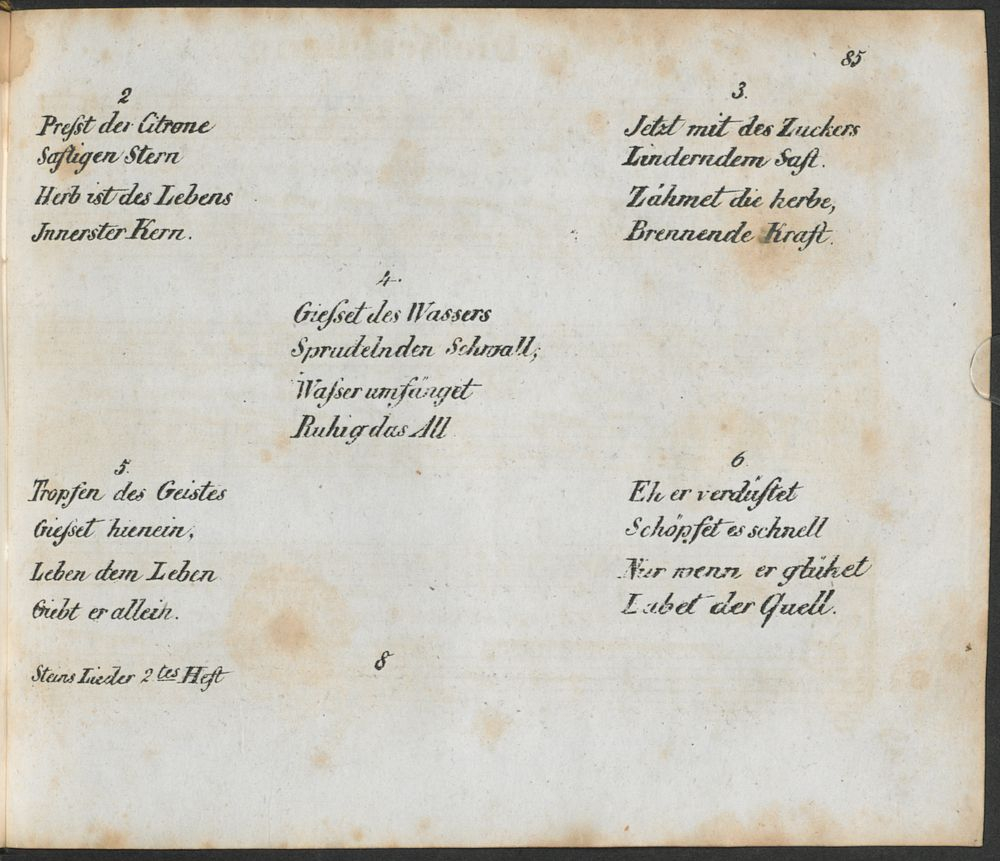 85
2
Preſst der Citrone
Saftigen Stern
Herb ist des Lebens
Jnnerster Kern.
3.
Jetzt mit des Zuckers
Linderndem Saft.
Zähmet die herbe,
Brennende Kraft.
4.
Gieſset des Wassers
Sprudelnden Schwall;
Waſser umfänget
Ruhig das All
5.
Tropfen des Geistes
Gieſset hienein,
Leben dem Leben
Giebt er allein.
6.
Eh er verdüftet
Schöpfet es schnell
Nur wenn er glühet
Labet der Quell.
Steins Lieder 2tes Heft
8